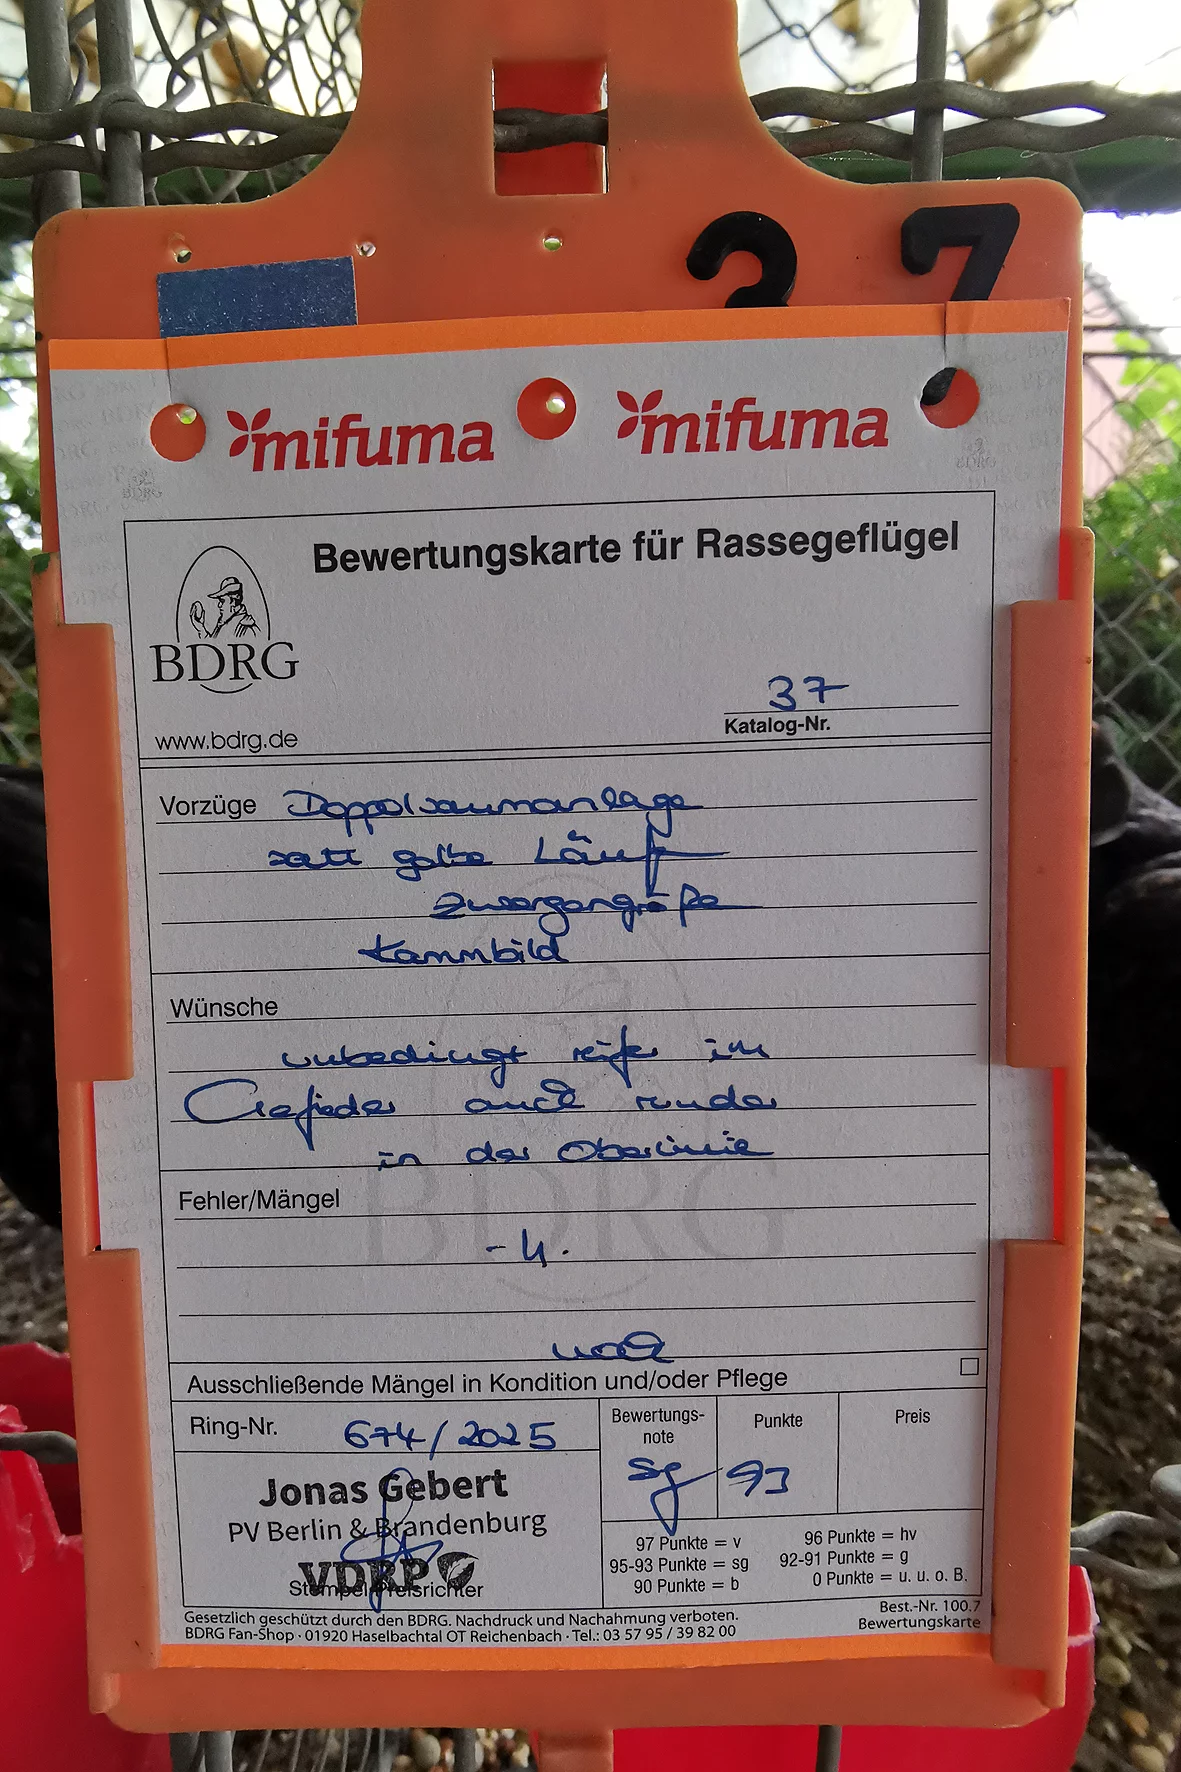 37
mifuma mifuma
BDRG BDRG
Bewertungskarte für Rassegeflügel
BDRG
37
www.bdrg.de
Katalog-Nr.
Vorzüge Doppelsaumanlage
satt gelbe Läufe
Zwergengröße
Kammbild
Wünsche
unbedingt reifer im
Gefieder auch runder
in der Oberlinie
BDRG
Fehler/Mängel
- 4.
noch
Ausschließende Mängel in Kondition und/oder Pflege
Ring-Nr. 674/2025
Bewertungs-
note
Punkte
Preis
sg 93
Jonas Gebert
PV Berlin & Brandenburg
VDRP
Stempel Preisrichter
97 Punkte = v 96 Punkte = hv
95-93 Punkte = sg 92-91 Punkte = g
90 Punkte = b 0 Punkte = u. u. o. B.
Gesetzlich geschützt durch den BDRG. Nachdruck und Nachahmung verboten.
BDRG Fan-Shop · 01920 Haselbachtal OT Reichenbach · Tel.: 03 57 95 / 39 82 00
Best.-Nr. 100.7
Bewertungskarte